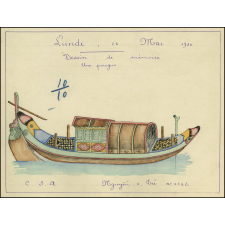 Lundi, 12 Mai 1930
Dessin de mémoire
Une pirogue
10
10
C S A
Nguyễn v. Trí